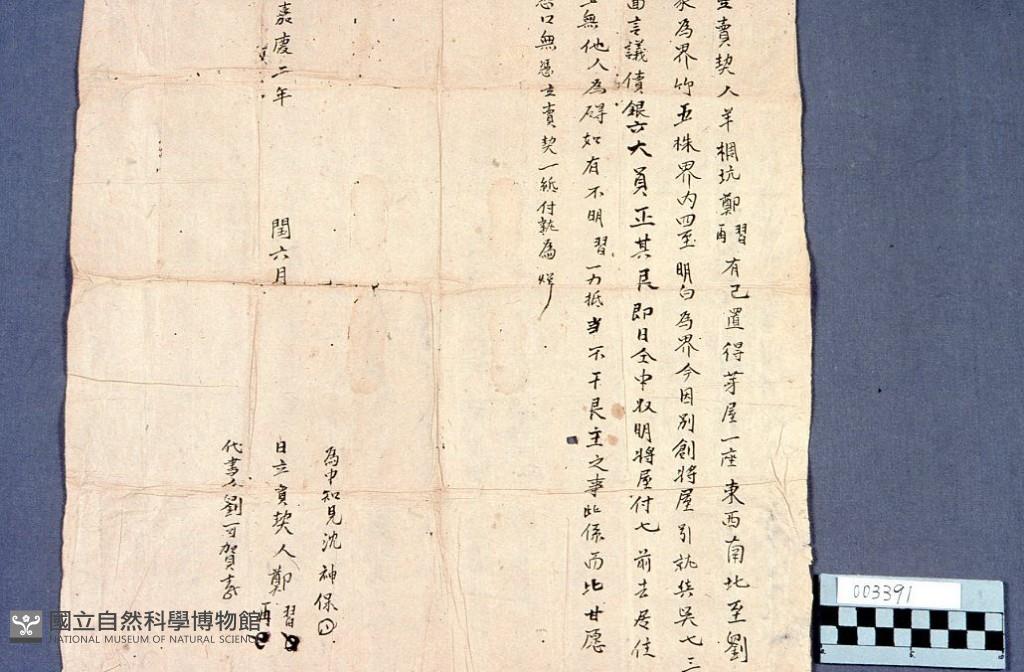 賣契人羊稠坑鄭習再有己置得茅屋一座東西南北至劉
家為界竹五株界內四至明白為界今因別創將屋引就與吳七三
面言議價銀六大員正其艮即日仝中收明將屋付七前去居住
無他人為碍如有不明習一力抵當不干艮主之事此係而比甘愿
口無憑立賣契一紙付執為炤
為中知見沈神保
嘉慶二年 閏六月 日立賣契人鄭習再
代書人劉可賀
國立自然科學博物館
NATIONAL MUSEUM OF NATURAL SCIENCE
003391